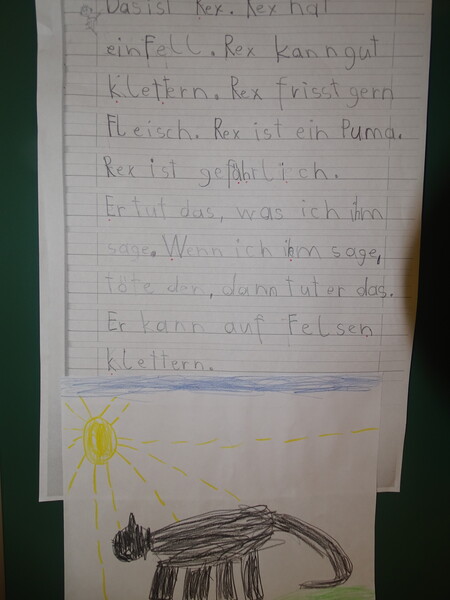 Das ist Rex. Rex hat
ein Fell. Rex kann gut
klettern. Rex frisst gern
Fleisch. Rex ist ein Puma.
Rex ist gefährlich.
Er tut das, was ich ihm
sage. Wenn ich ihm sage,
töte den, dann tut er das.
Er kann auf Felsen
klettern.